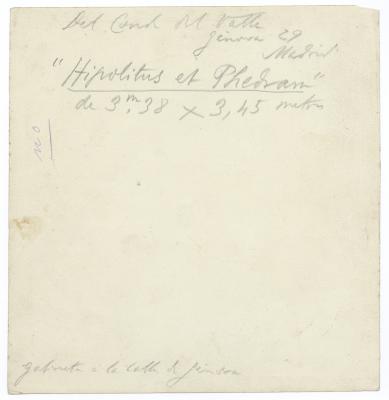 Del Cond del Valle
Génova 29
Madrid
"Hipolitus et Phedram"
de 3.m38 x 3,45 metros
no
gabinete a la calle de Génova